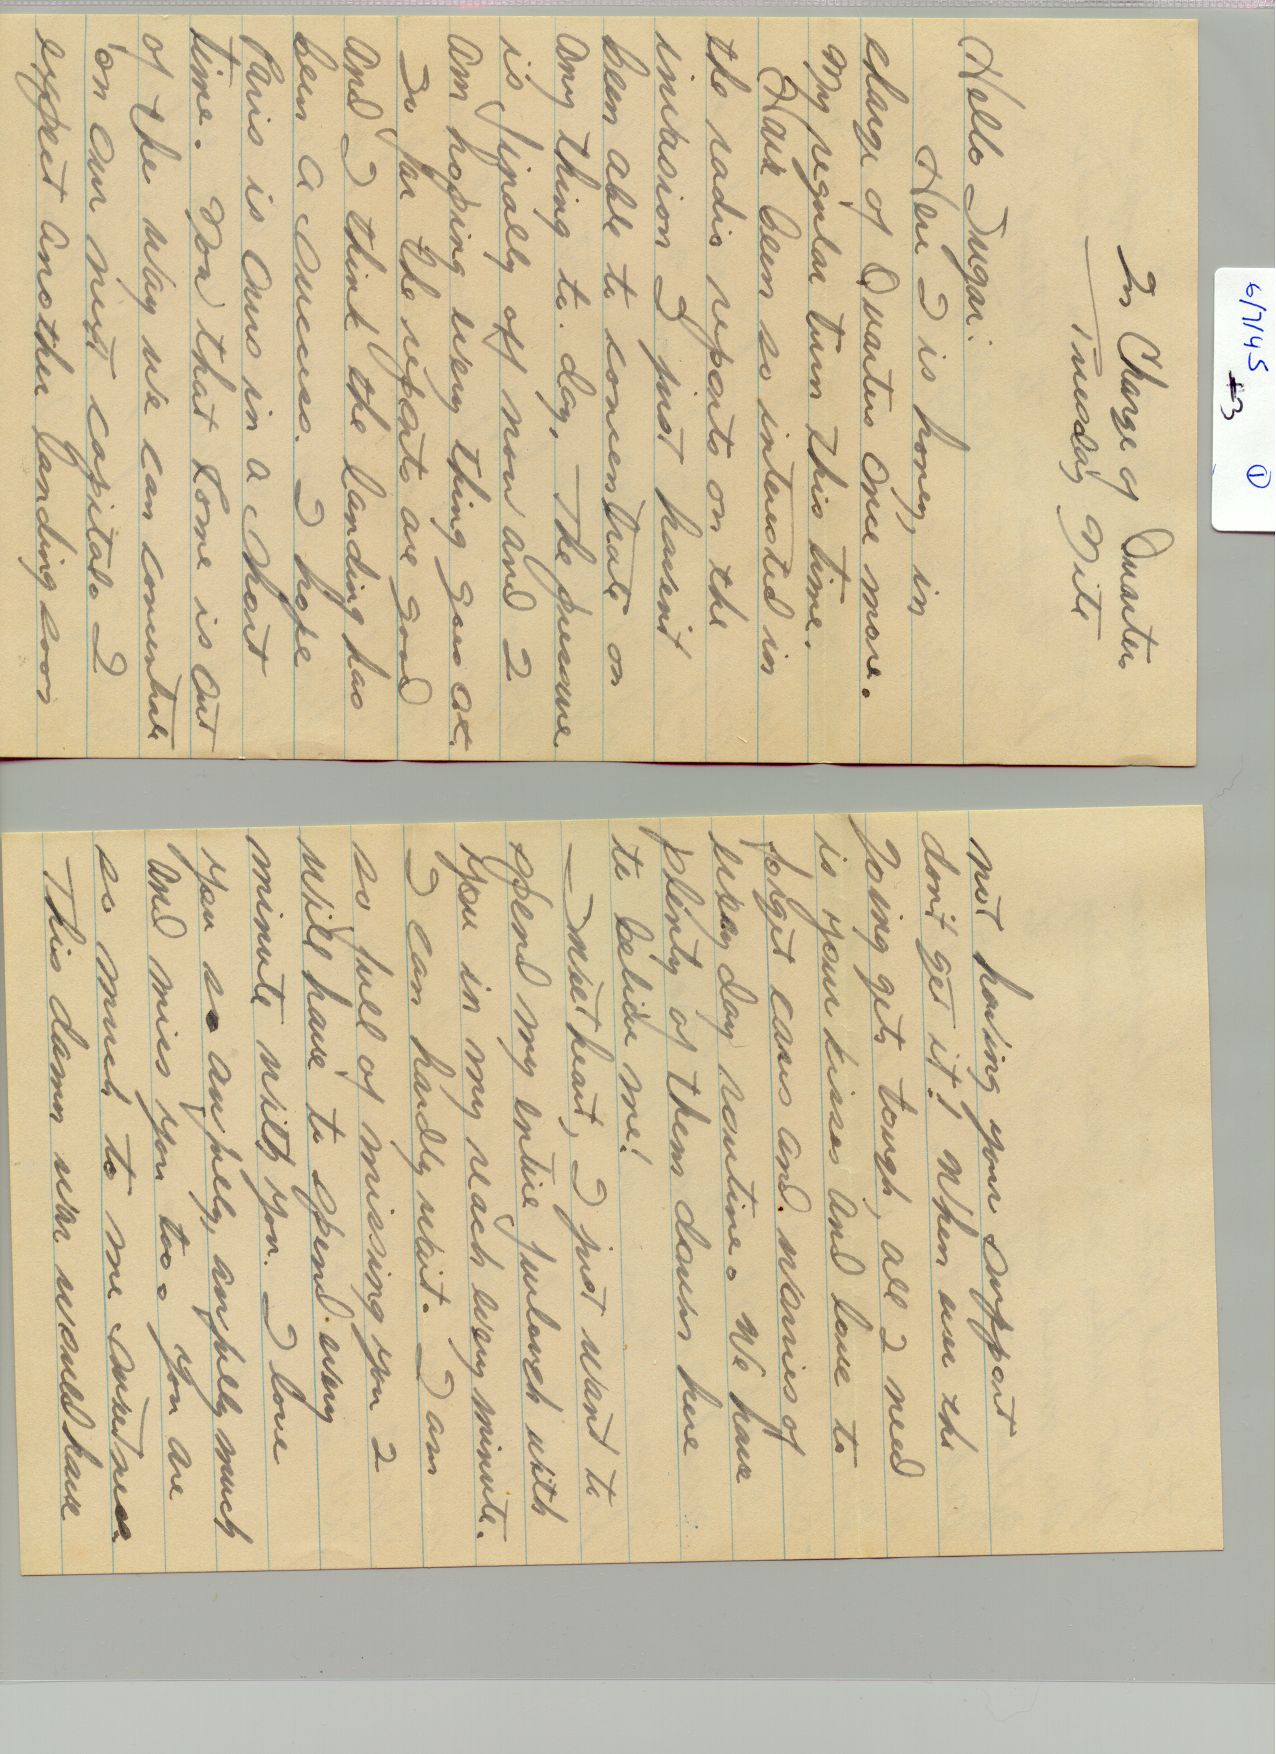 6/7/45
#3
①
In Charge of Quarters
Tuesday Nite
Hello Sugar:
Here I is honey, in
charge of Quarters once more.
My regular turn this time.
Have been so interested in
the radio reports on the
invasion I just havent
been able to concentrate on
any thing to-day. The pressure
is finally off now and I
am hoping every thing goes ok.
So far the reports are good
and I think the landing has
been a success. I hope
Paris is ours in a short
time. Now that Rome is out
of the way we can concentrate
on our next capitals I
expect another landing soon
not having your support
don't get it! When ever the
going gets tough, all I need
is your kisses and love to
forget cares and worries of
every day routine. We have
plenty of them down here
to believe me!
Sweetheart, I just want to
spend my entire furlough with
you in my reach every minute.
I can hardly wait. I am
so full of missing you I
will have to spend every
minute with you. I love
you so awfully, awfully much
and miss you too. You are
so much to me sweetness
This damn war would have